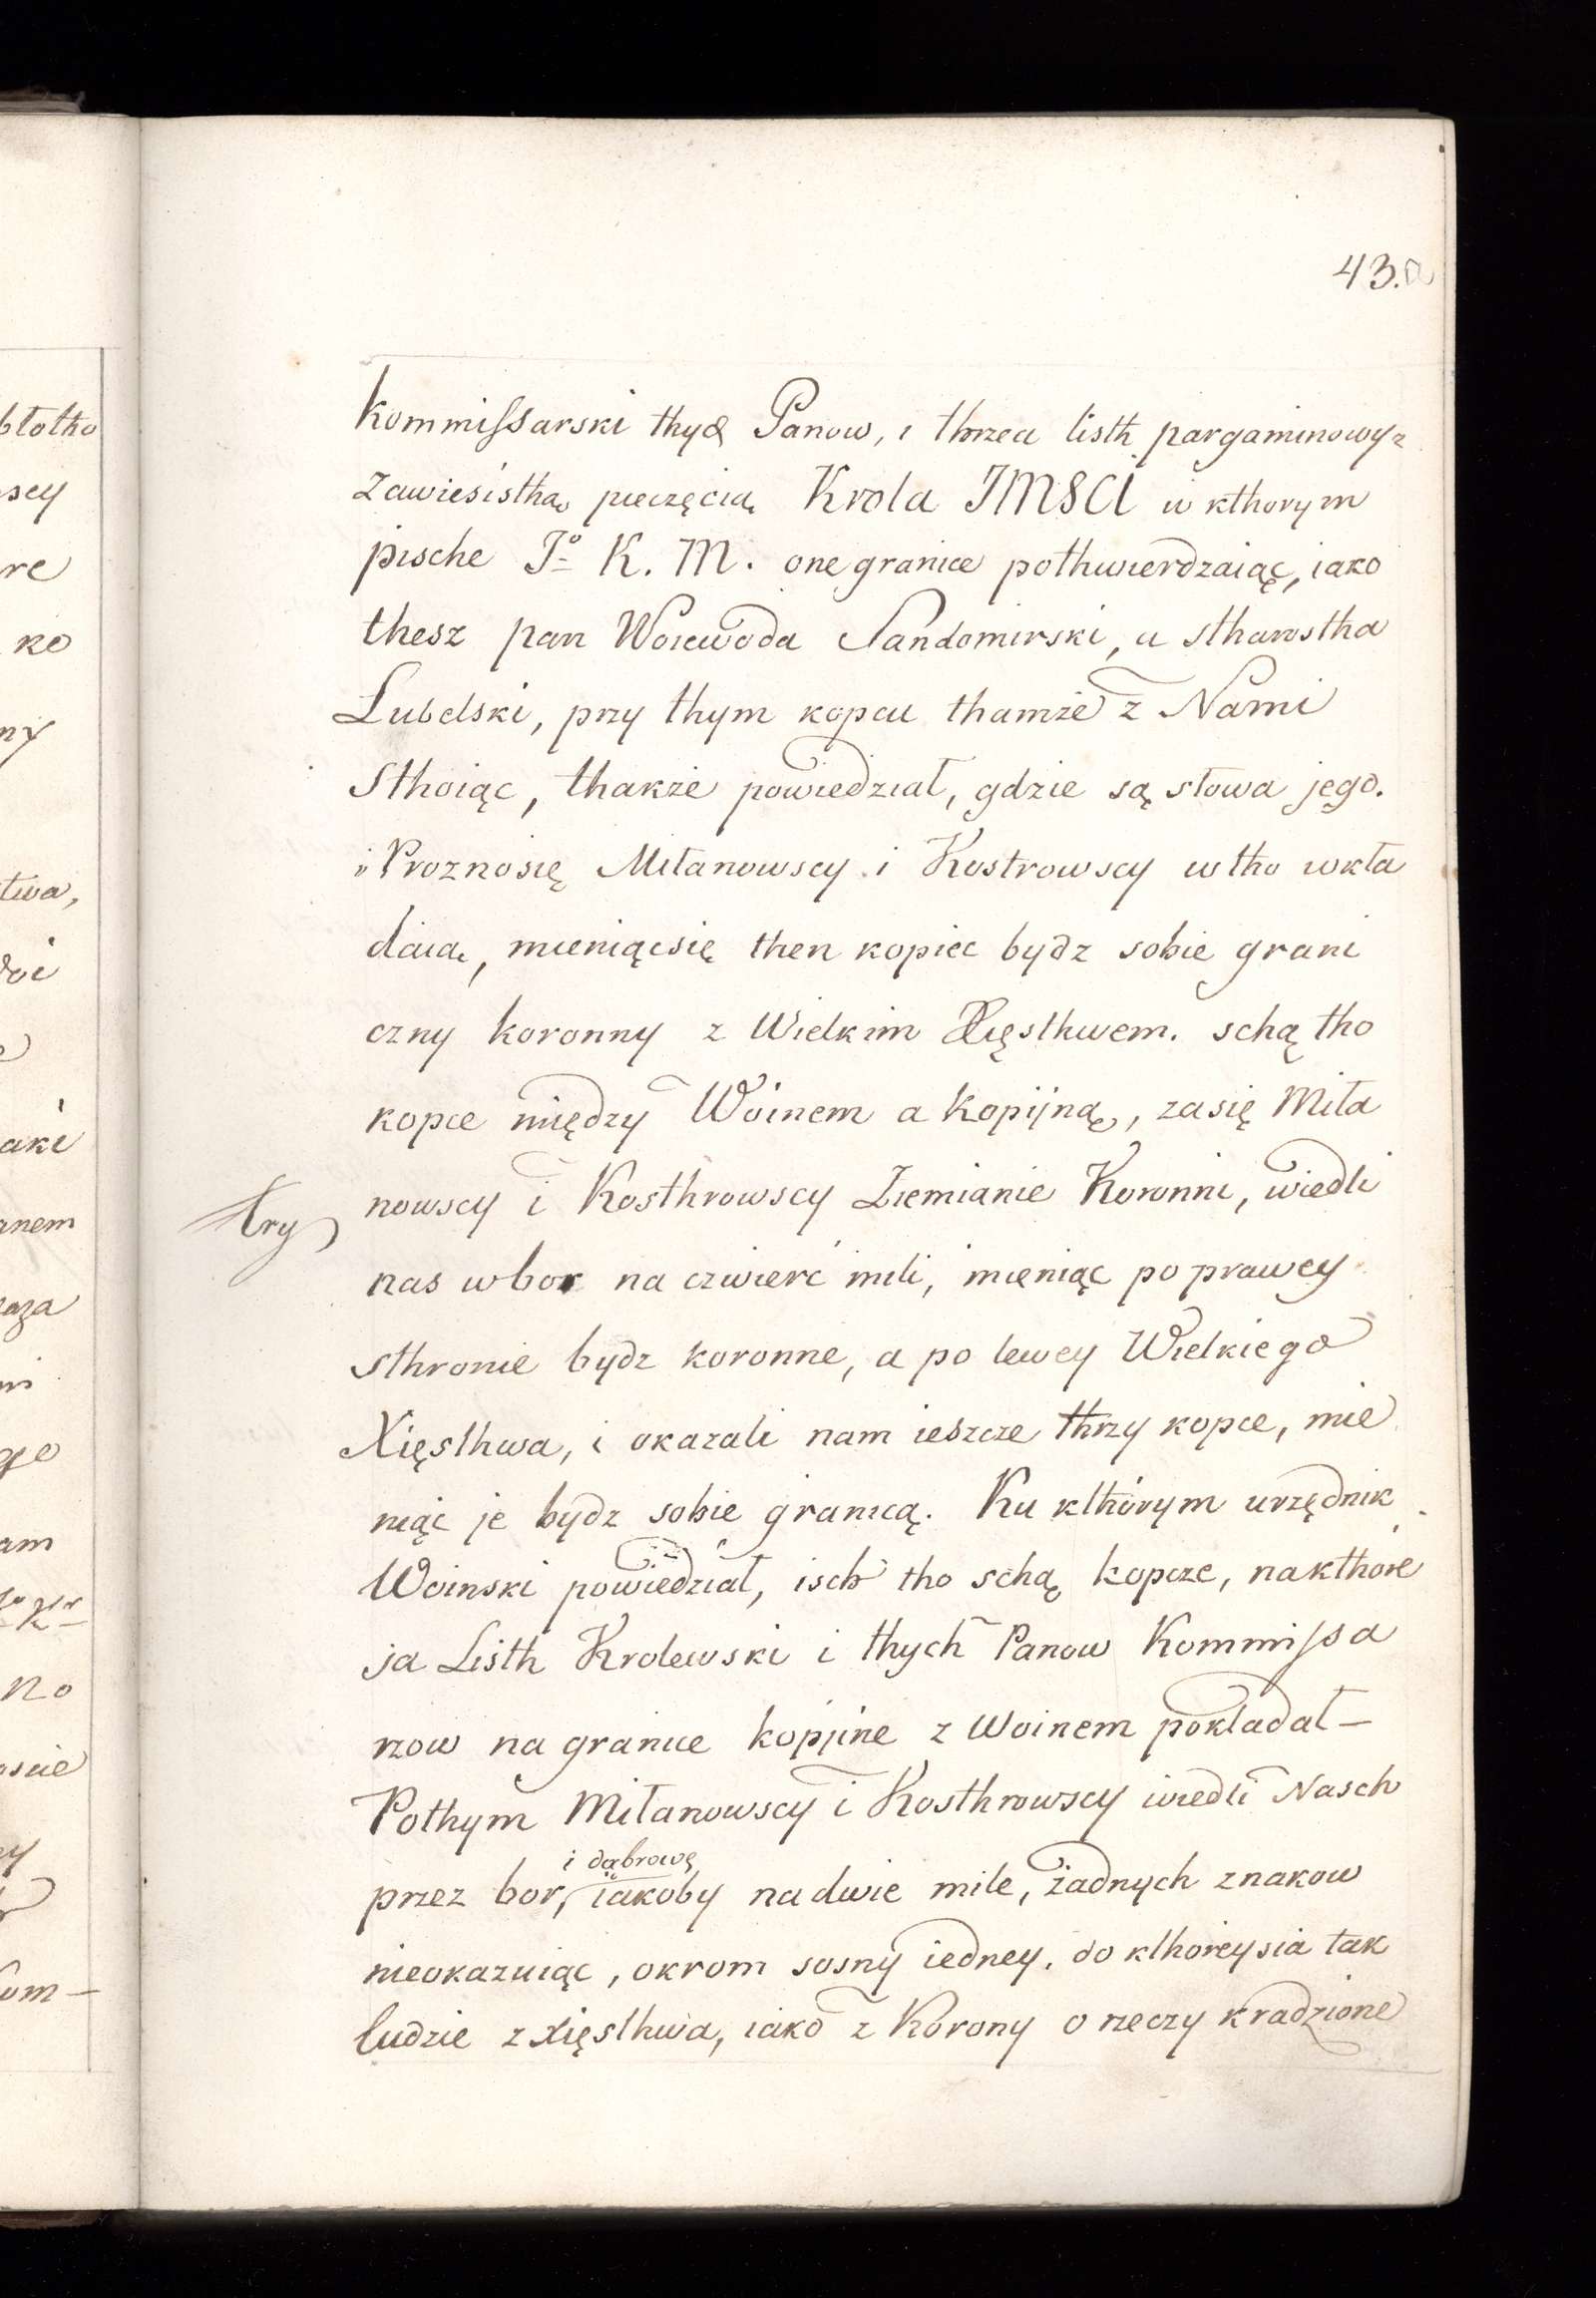 43.a
kommissarski thych Panow, i thrzeci listh pargaminowy z
zawiesisthą pieczęcią Krola JMSCi w kthorym
pische Jº K. M. one granice pothwierdzaiąc, iako
thesz pan Woiewoda Sandomirski, a stharostha
Lubelski, przy thym kopcu thamże z Nami
Sthoiąc, thakże powiedział, gdzie są słowa jego.
i Proznosię Miłanowscy i Kostrowscy wtho wkła
daią, mieniącsię then kopiec bydz sobie grani
czny koronny z Wielkim Xięsthwem. schą tho
kopce między Woinem a Kopijną, zasię Miła
nowscy i Kosthrowscy Ziemianie Koronni, wiedli
try
nas wbor na czwierć mili, mieniąc po prawey
sthronie bydz koronne, a po lewey Wielkiego
Xięsthwa, i okazali nam ieszcze thrzy kopce, mie
niąc je bydz sobie granicą. Ku kthórym urzędnik
Woinski powiedział, isch tho schą kopcze, nakthore
ja Listh Krolewski i thych Panow Kommissa
rzow na granice kopijne z Woinem pokładał—
Pothym Miłanowscy i Kosthrowscy wiedli Nasch
i dąbrowę
przez bor, iakoby na dwie mile, żadnych znakow
nieokazuiąc, okrom sosny iedney, do kthoreysia tak
ludzie z xięsthwa, iako z Korony o rzeczy kradzione